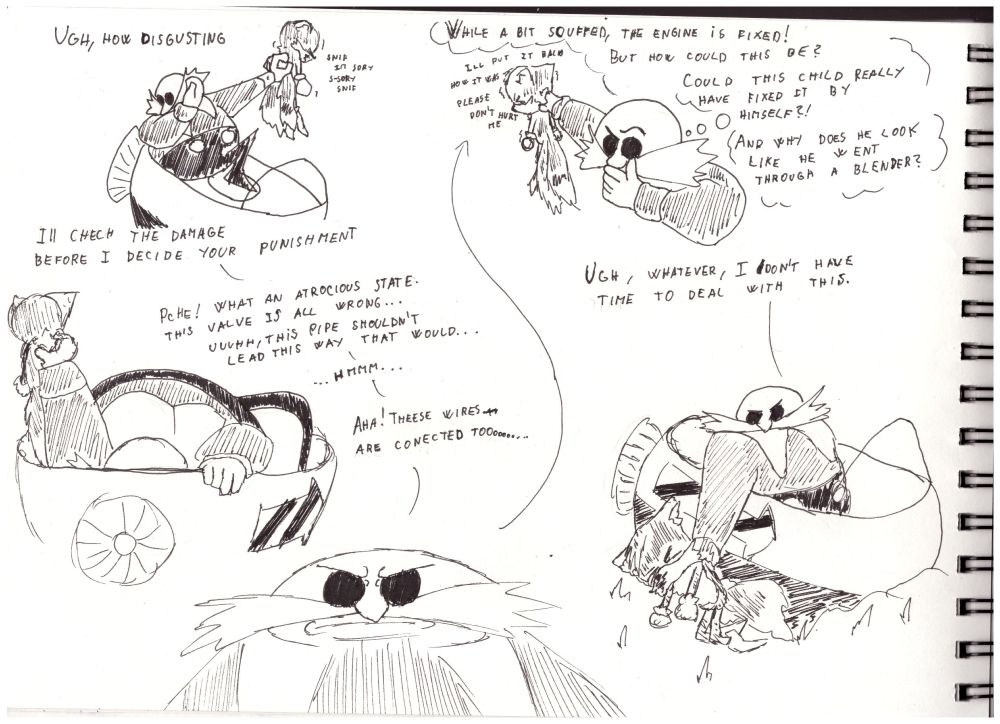 UGH, HOW DISGUSTING
SNIF
I'M SORY
S-SORY
SNIF
I'll CHECH THE DAMAGE
BEFORE I DECIDE YOUR PUNISHMENT
PCHE! WHAT AN ATROCIOUS STATE.
THIS VALVE IS ALL WRONG...
UUUHH, THIS PIPE SHOULDN'T
LEAD THIS WAY THAT WOULD...
...HMMM...
AHA! THEESE WIRES
ARE CONECTED TOOooo.....
WHILE A BIT SQUFFED, THE ENGINE IS FIXED!
I'LL PUT IT BACK
HOW IT WAS
PLEASE
DON'T HURT
ME
BUT HOW COULD THIS BE?
COULD THIS CHILD REALLY
HAVE FIXED IT BY
HIMSELF?!
AND WHY DOES HE LOOK
LIKE HE WENT
THROUGH A BLENDER?
UGH, WHATEVER, I DON'T HAVE
TIME TO DEAL WITH THIS.